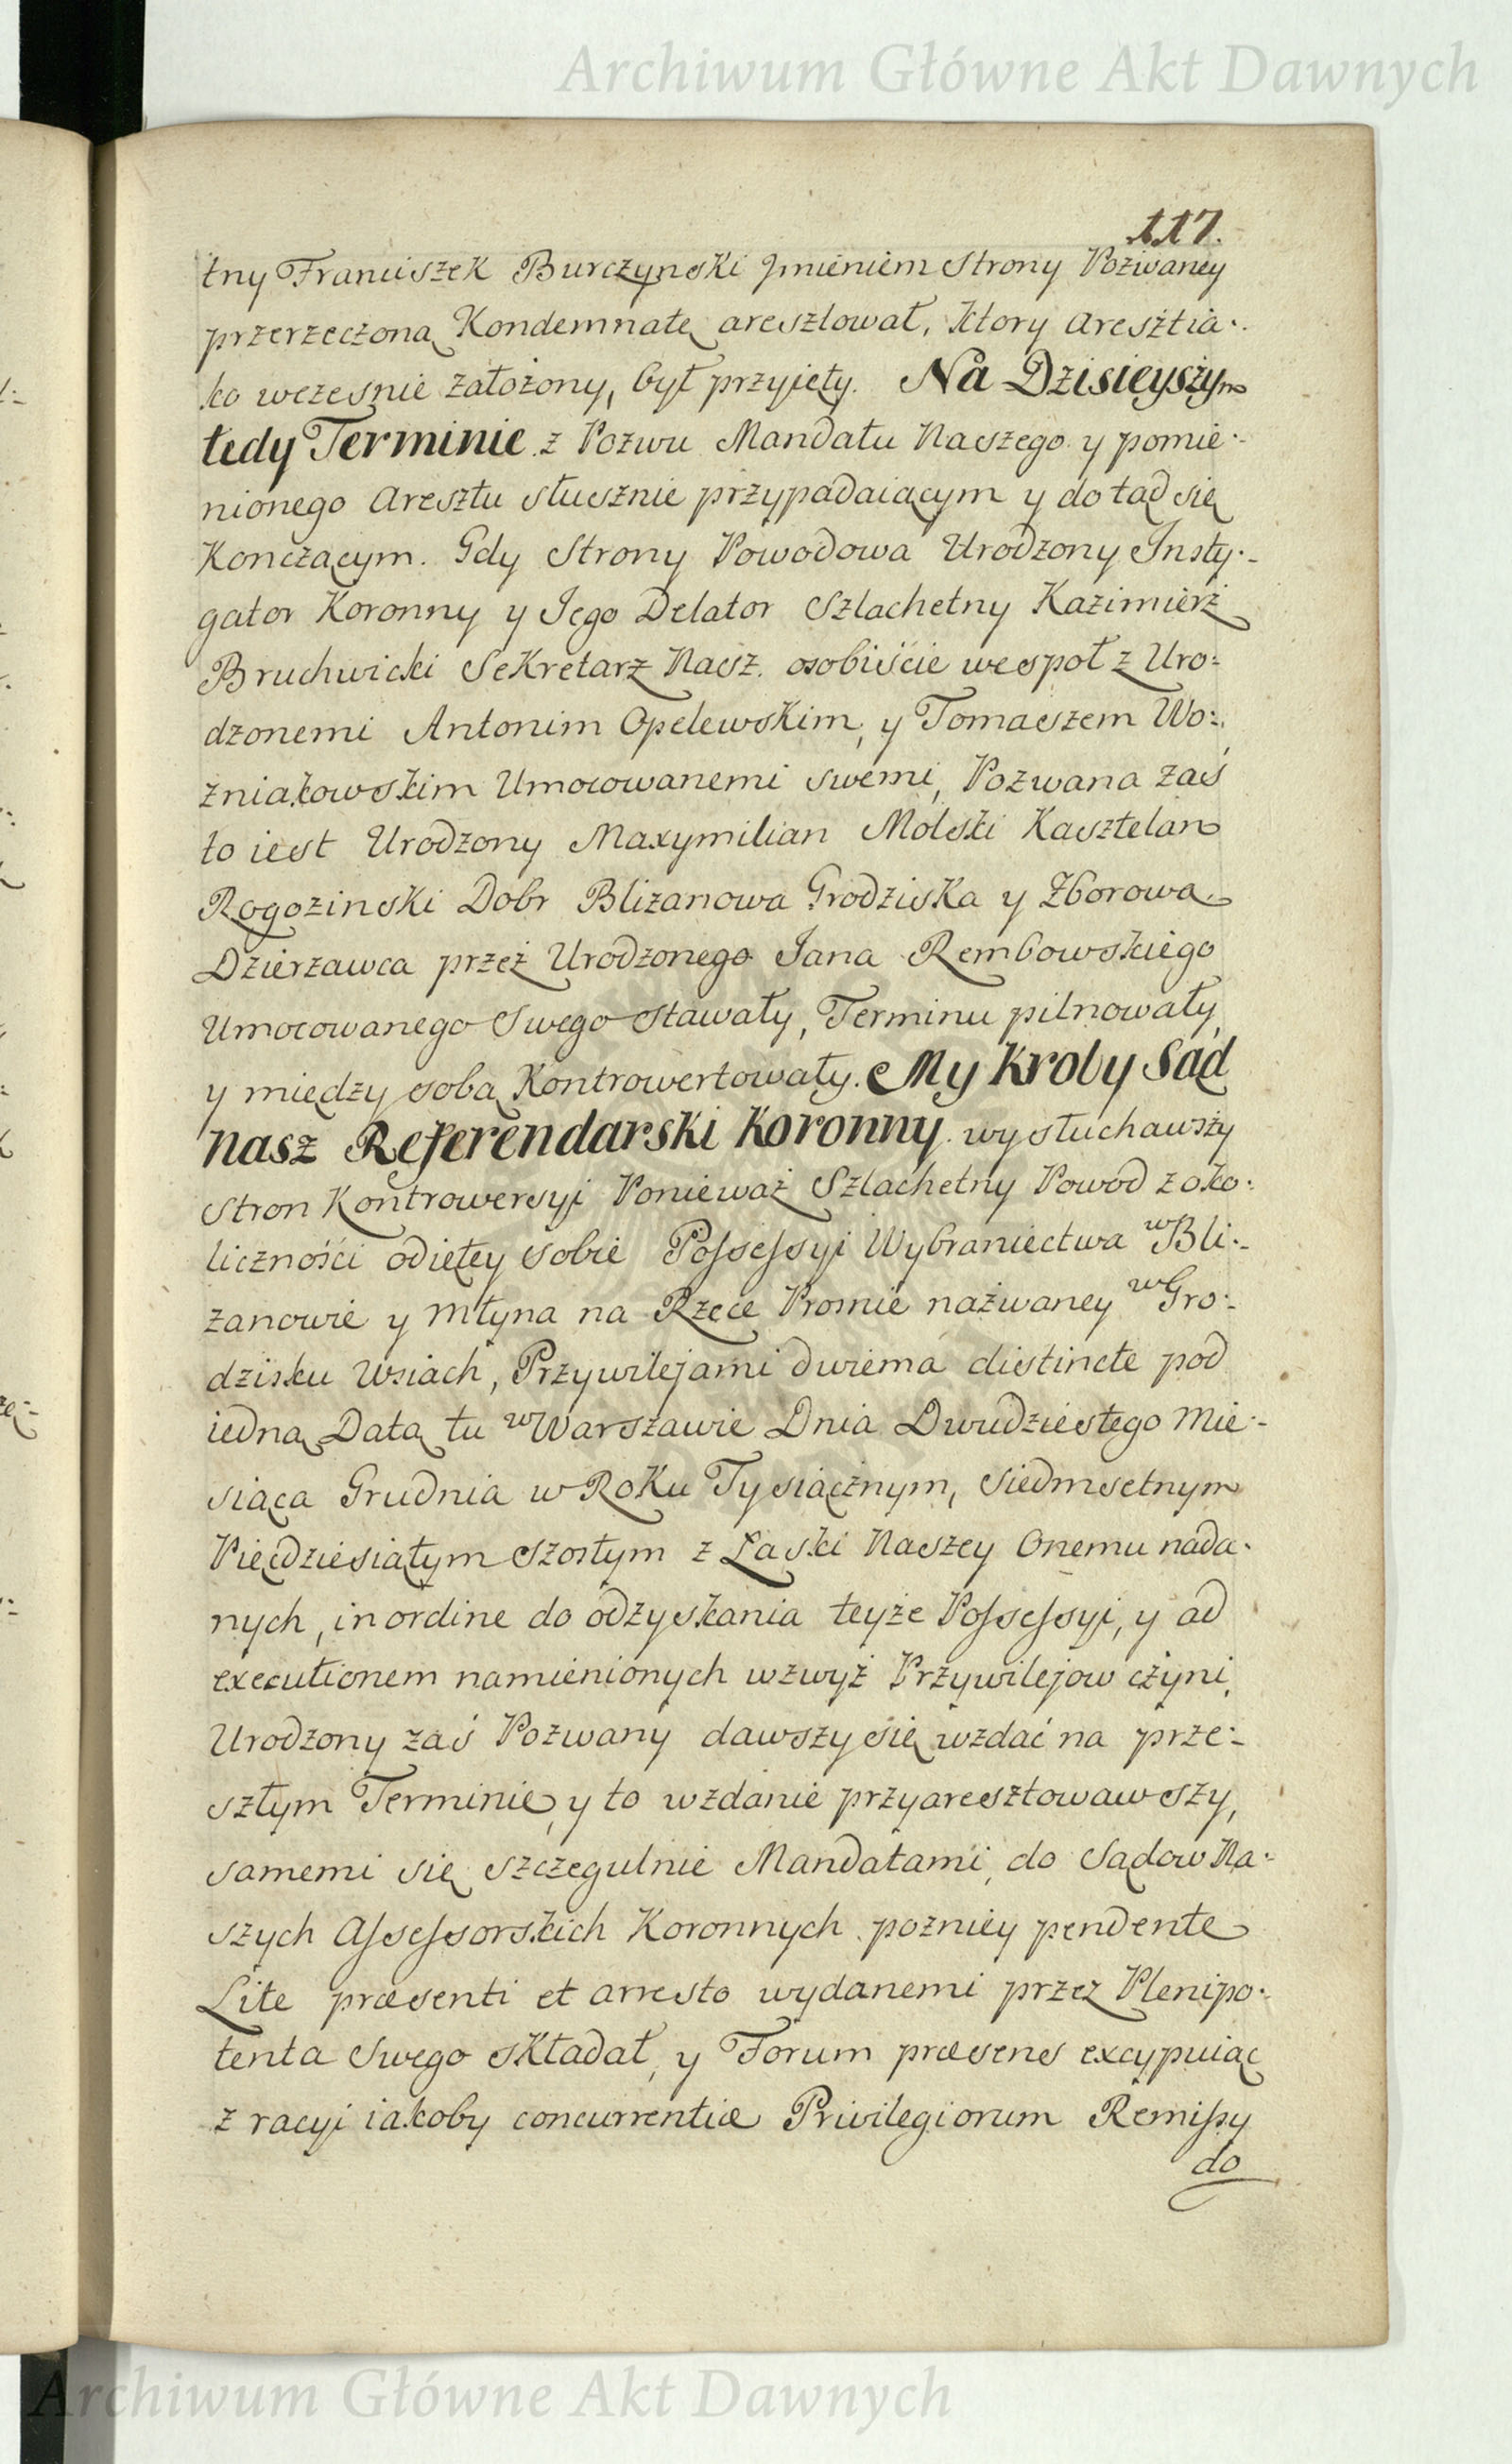 Archiwum Główne Akt Dawnych
117.
tny Franciszek Burczynski Jmieniem Strony Pozwaney
przerzeczoną Kondemnatę aresztował, ktory Areszt ia-
ko wczesnie założony, był przyięty. Na Dzisieyszym
tedy Terminie z Pozwu Mandatu Naszego y pomie-
nionego Aresztu słusznie przypadaiącym y do tąd się
Konczącym. Gdy Strony Powodowa Urodzony Insty-
gator Koronny y Jego Delator Szlachetny Kazimierz
Bruchwicki Sekretarz Nasz. osobiście wespoł z Uro-
dzonemi Antonim Opelewskim, y Tomaszem Wo-
zniakowskim Umocowanemi swemi, Pozwana zaś
to iest Urodzony Maxymilian Molski Kasztelan
Rogozinski Dobr Blizanowa Grodziska y Zborowa
Dzierzawca przez Urodzonego Jana Rembowskiego
Umocowanego Swego stawały, Terminu pilnowały,
y między sobą Kontrowertowały. My Kroly Sąd
nasz Referendarski Koronny wysłuchawszy
Stron Kontrowersyi Ponieważ Szlachetny Powod z oko-
liczności odiętey sobie Possessyi Wybraniectwa w Bli-
zanowie y Młyna na Rzece Prosnie nazwaney w Gro-
dzisku Wsiach, Przywilejami dwiema distincte pod
iedną Datą tu w Warszawie Dnia Dwudziestego Mie-
siąca Grudnia w Roku Tysiącznym, siedmsetnym
Pięcdziesiątym szostym z Łaski Naszey Onemu nada-
nych, in ordine do odzyskania teyże Possessyi, y ad
executionem namienionych wzwyż Przywilejow czyni,
Urodzony zaś Pozwany dawszy się wzdać na prze-
szłym Terminie, y to wzdanie przyaresztowawszy,
samemi się szczegulnie Mandatami, do Sądow Na-
szych Assessorskich Koronnych pozniey pendente
Lite præsenti et arresto wydanemi przez Plenipo-
tenta Swego składał, y Forum præsens excypuiąc
z racyi iakoby concurrentiæ Privilegiorum Remissy
do
Archiwum Główne Akt Dawnych